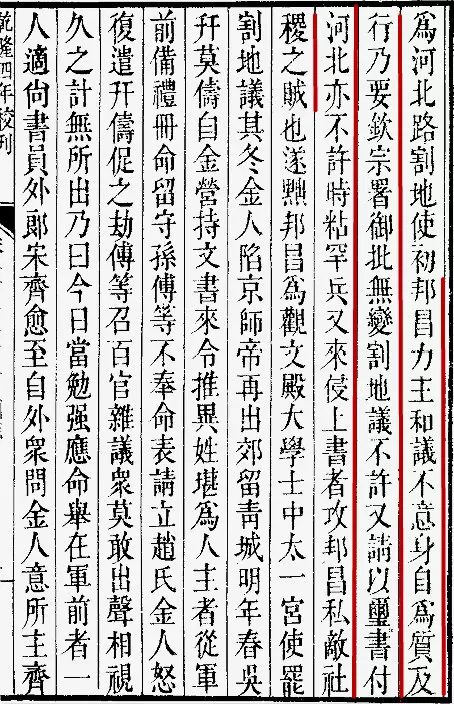 爲河北路割地使初邦昌力主和議不意身自爲質及
行乃要欽宗署御批無變割地議不許又請以璽書付
河北亦不許時粘罕兵又來侵上書者攻邦昌私敵社
稷之賊也遂黜邦昌爲觀文殿大學士中太一宮使罷
割地議其冬金人陷京師帝再出郊留青城明年春吳
幵莫儔自金營持文書來令推異姓堪爲人主者從軍
前備禮冊命留守孫傅等不奉命表請立趙氏金人怒
復遣幵儔促之劫傅等召百官雜議衆莫敢出聲相視
久之計無所出乃曰今日當勉强應命舉在軍前者一
人適尙書員外郞宋齊愈至自外衆問金人意所主齊
乾隆四年校刊